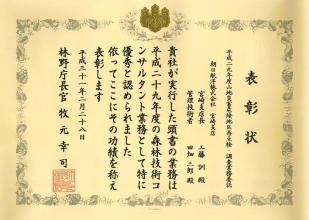 表彰状
平成二十九年度山地災害危険地区再点検・調査業務委託
朝日航洋株式会社 宮崎支店
宮崎支店長 工藤 訓 殿
管理技術者 田畑 三郎 殿
貴社が実行した頭書の業務は
平成二十九年度の森林技術コ
ンサルタント業務として特に
優秀と認められました
依ってここにその功績を称え
表彰します
平成三十一年二月二十八日
林野庁長官 牧元幸司